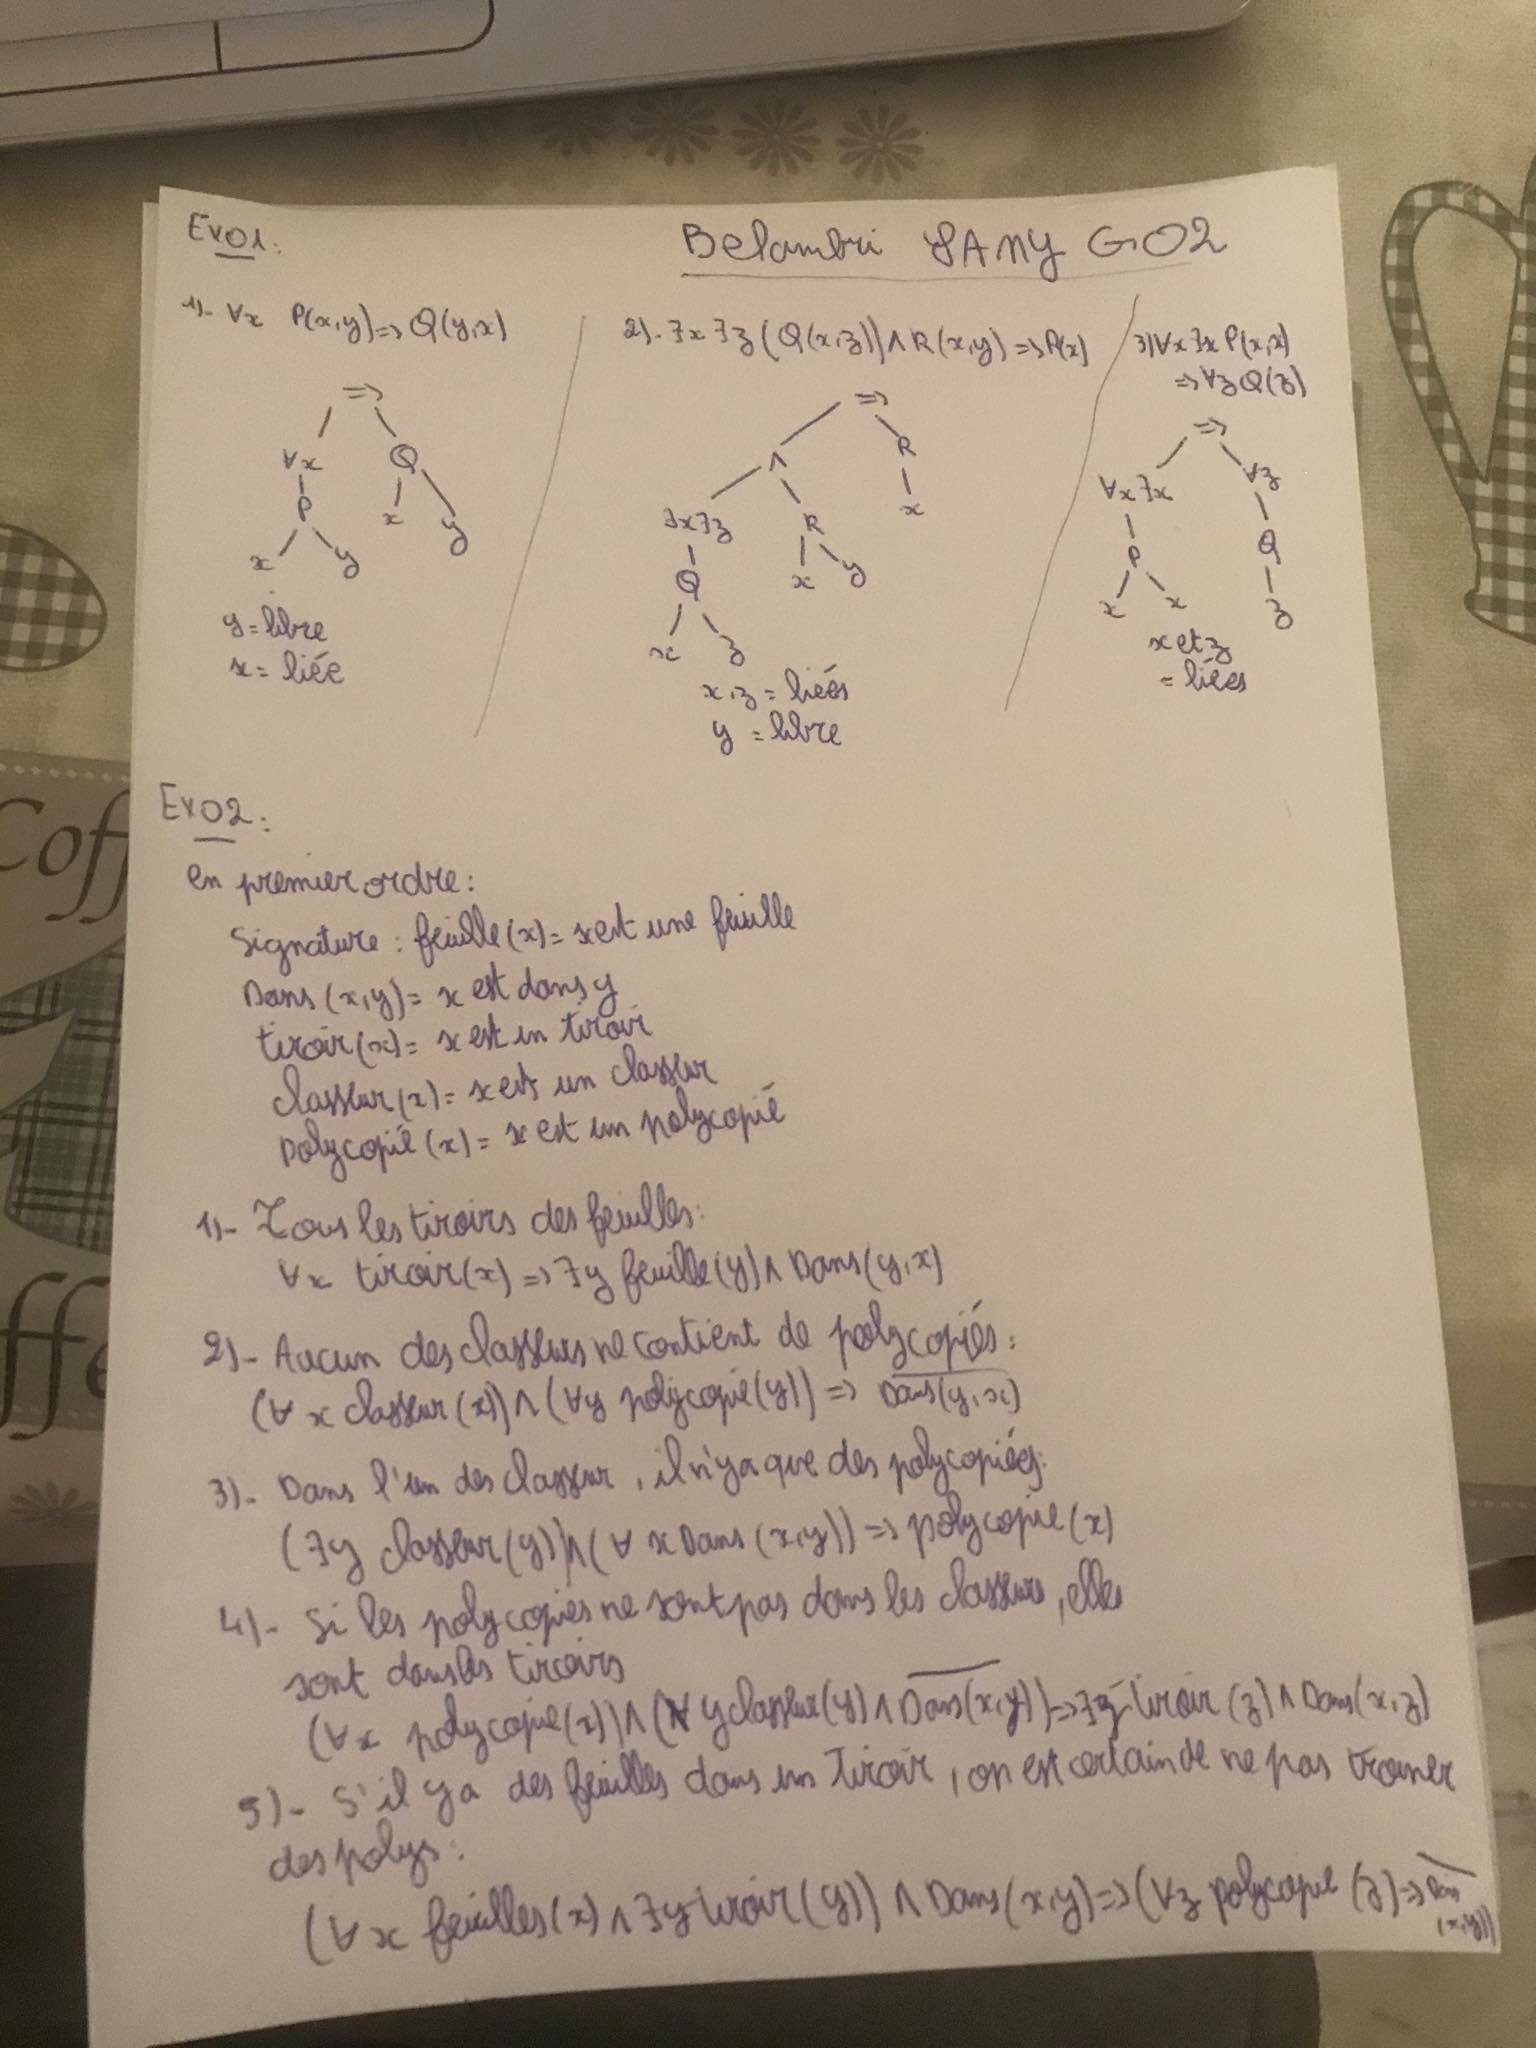 Exo1:
Belambri SAMY G02
1)- ∀x P(x,y) => Q(y,x)
=>
∀x Q
P x y
x y
y = libre
x = liée
2)- ∃x ∃z (Q(x,z)) ∧ R(x,y) => P(x)
=>
∧ R
∃x∃z R x
Q x y
x z
x,z = liées
y = libre
3) ∀x ∃x P(x,x)
=> ∀z Q(z)
=>
∀x∃x ∀z
P Q
x x z
x et z
= liées
Exo2:
en premier ordre:
Signature: feuille(x) = x est une feuille
Dans (x,y) = x est dans y
tiroir(x) = x est un tiroir
classeur(x) = x est un classeur
Polycopié (x) = x est un polycopié
1)- Tous les tiroirs des feuilles:
∀x tiroir(x) => ∃y feuille(y) ∧ Dans(y,x)
2)- Aucun des classeurs ne contient de polycopiés:
(∀ x classeur(x)) ∧ (∀y polycopié(y)) => D̅a̅n̅s̅(y,x)
3)- Dans l'un des classeur, il n'y a que des polycopiés:
(∃y classeur(y)) ∧ (∀ x Dans (x,y)) => polycopié (x)
4)- Si les polycopiés ne sont pas dans les classeurs, elles
sont dans les tiroirs
(∀x polycopié(x)) ∧ (∀ y classeur(y) ∧ D̅a̅n̅s̅(x,y)) => ∃z tiroir (z) ∧ Dans(x,z)
5)- S'il y a des feuilles dans un tiroir, on est certain de ne pas trouver
des polys:
(∀x feuilles(x) ∧ ∃y tiroir(y)) ∧ Dans(x,y) => (∀z polycopié (z) => D̅a̅n̅s̅
(x,y))
Coff
ffe